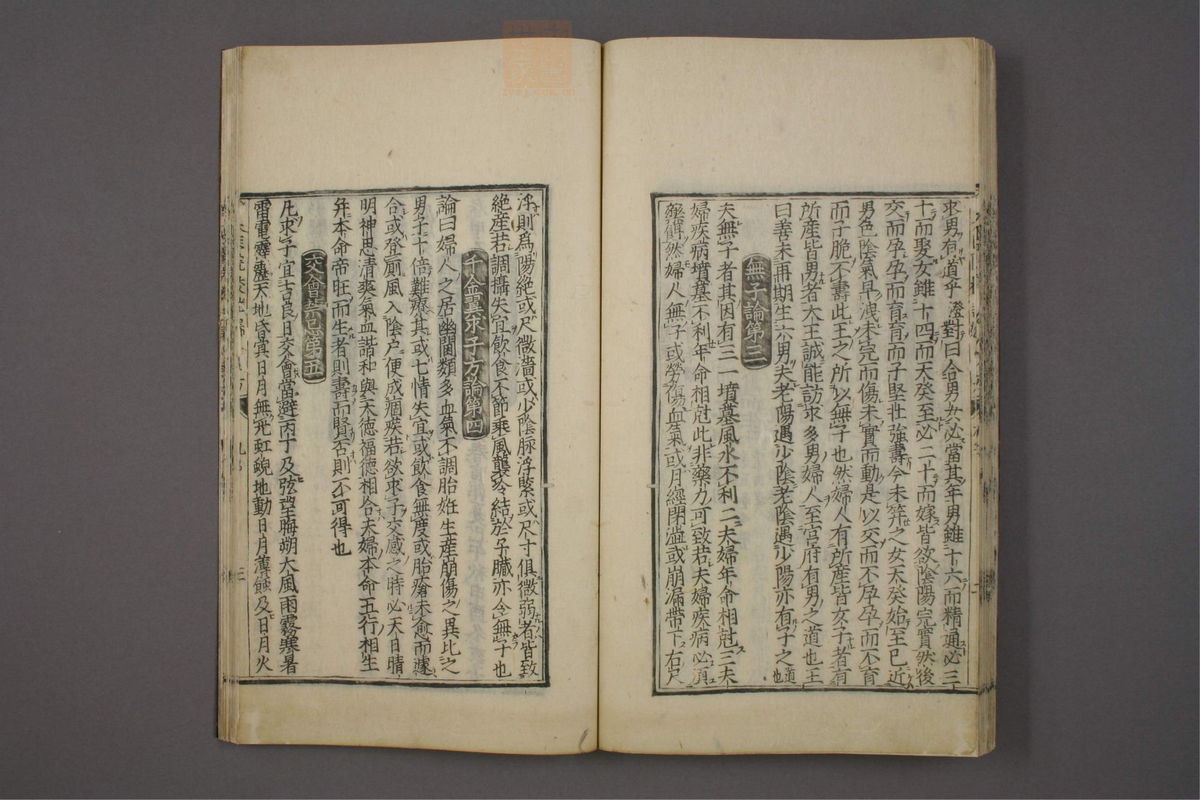 求男有道乎澄對曰合男女必當其年男雖十六而精通必三
十而娶女雖十四而天癸至必二十而嫁皆欲陰陽完實然後
交而孕孕而育育而子堅壯強壽今未笄之女天癸始至已近
男色陰氣早洩未完而傷未實而動是以交而不孕孕而不育
而子脆不壽此王之所以無子也然婦人有所產皆女子者有
所產皆男者大王誠能訪求多男婦人至宮府有男之道也王
曰善未再期生六男夫老陽遇少陰老陰遇少陽亦有子之道也
無子論第三
夫無子者其因有三一墳墓風水不利二夫婦年命相尅三夫
婦疾病墳墓不利年命相尅此非藥力可致若夫婦疾病必須
藥餌然婦人無子或勞傷血氣或月經閉澁或崩漏帶下右尺
浮則爲陽絕或尺微濇或少陰脉浮緊或尺寸俱微弱者皆致
絶産若調攝失宜飲食不節乘風襲冷結於子臟亦令無子也
千金翼求子方論第四
論曰婦人之居幽閨類多血氣不調胎姙生産崩傷之異比之
男子十倍難療其或七情失宜或飲食無度或胎瘡未愈而遽
合或登厠風入陰户便成痼疾若欲求子交感之時必天日晴
明神思清爽氣血諧和與天德福德相合夫婦本命五行相生
幷本命帝旺而生者則壽而賢否則不可得也
交會禁忌第五
凡求子宜吉良日交會當避丙丁及弦望晦朔大風雨霧寒暑
雷電霹靂天地昏冥日月無光虹蜺地動日月薄蝕及日月火